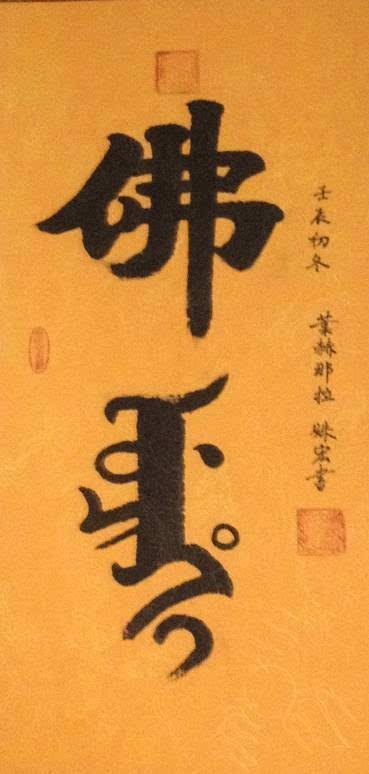 佛
ᡶᡠᠴᡳᡥᡳ
壬辰初冬 葉赫那拉 姝宏書